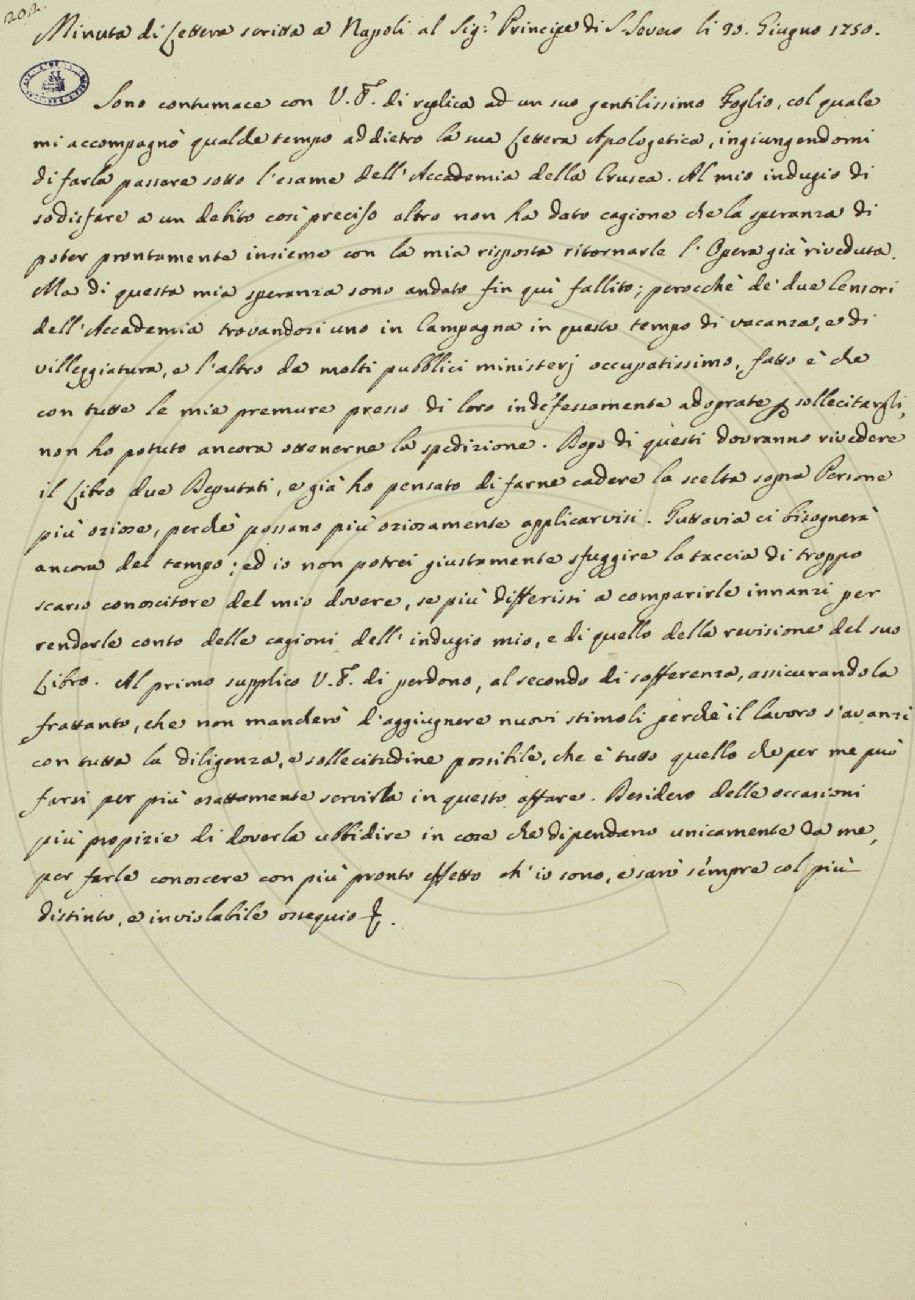 202.
Minuta di Lettera scritta a Napoli al Sig.r Principe di S. Severo li 30. Giugno 1750.
Sono contumace con V. E. di replica ad un suo gentilissimo Foglio, col quale
mi accompagnò qualche tempo addietro la sua Lettera Apologetica, ingiungendomi
di farla passare sotto l'esame dell'Accademia della Crusca. Al mio indugio di
sodisfare a un debito così preciso altro non ha dato cagione che la speranza di
poter prontamente insieme con la mia risposta ritornarle l'Opera già riveduta.
Ma di questa mia speranza sono andato fin quì fallito; perocchè de' due Censori
dell'Accademia trovandosi uno in Campagna in questo tempo di vacanza, e di
villeggiatura, e l'altro da molti pubblici ministerj occupatissimo, fatto è che
con tutte le mie premure presso di loro indefessamente adoprate p sollecitargli,
non ho potuto ancora ottenerne la spedizione. Dopo di questi dovranno rivedere
il Libro due Deputati, e già ho pensato di farne cadere la scelta sopra Persone
più oziose, perchè possano più oziosamente applicarvisi. Tuttavia ci bisognerà
ancora del tempo; ed io non potrei giustamente sfuggire la taccia di troppo
scarso conoscitore del mio dovere, se più differissi a comparirle innanzi per
renderle conto delle cagioni dell' indugio mio, e di quello della revisione del suo
Libro. Al primo supplico V. E. di perdono, al secondo di sofferenza, assicurandola
frattanto, che non mancherò d'aggiugnere nuovi stimoli perchè il lavoro s'avanzi
con tutta la diligenza, e sollecitudine possibile, che è tutto quello che per me può
farsi per più esattamente servirla in questo affare. Desidero delle occasioni
più propizie di doverla ubbidire in cose che dipendano unicamente da me,
per farle conoscere con più pronto effetto ch' io sono, e sarò sempre col più
distinto, e inviolabile ossequio &.